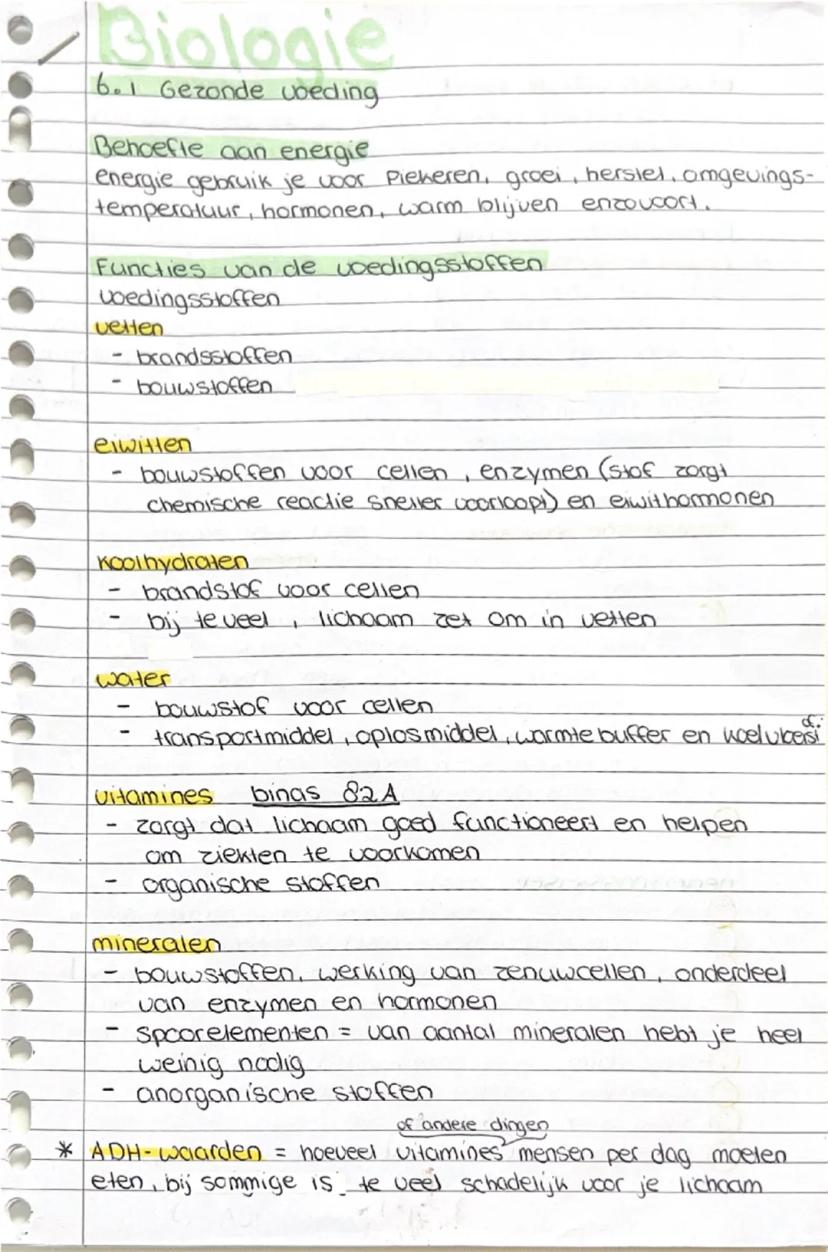 Biologie
6.1 Gezonde voeding
Behoefte aan energie
energie gebruik je voor Piekeren, groei, herstel, omgevings-
temperatuur, hormonen, warm blijven enzovoort.
Functies van de voedingsstoffen
voedingsstoffen
vetten
- brandsstoffen
- bouwstoffen
eiwitten
- bouwstoffen voor cellen, enzymen (stof zorgt
chemische reactie sneller voorloopt) en eiwithormonen
koolhydraten
- brandstof voor cellen
- bij te veel, lichaam zet om in vetten
water
- bouwstof voor cellen
- transportmiddel, oplosmiddel, warmtebuffer en
vitamines binas 82A
- zorgt dat lichaam goed functioneert en helpen
om ziekten te voorkomen
- organische stoffen
mineralen
- bouwstoffen, werking van zenuwcellen, onderdeel
van enzymen en hormonen
- spoorelementen = van aantal mineralen hebt je heel
weinig nodig
- anorganische stoffen
of andere dingen
* ADH-waarden = hoeveel vitamines mensen per dag moeten
eten, bij sommige is te veel schadelijk voor je lichaam